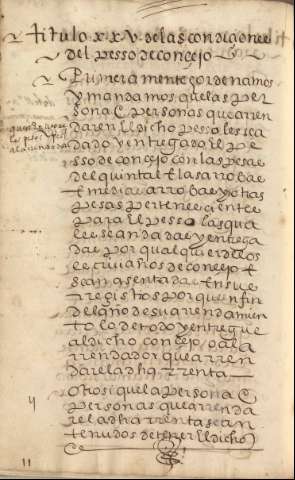 titulo xxv de las condiciones
del pesso de concejo
Primeramente hordenamos
y mandamos que las per
sona o personas que arren
daren el dicho pesso les sea
dado y entregado el pe
sso de concejo con las pesas
del quintal e la arroba e
e media arroba e y otras
pesas pertenecientes
para el pesso las qua
les sean dadas y entrega
das por qualquier de los
escrivanos de concejo e
sean asentadas en sus
rregistros porque en fin
del año de su arrendamien
to lo de todo y entregue
al dicho concejo o al a
rrendador que arren
dare la dha rrenta
Otrosi que la persona o
personas que arrenda
re la dha rrenta sean
tenudos de tener el dicho
4
11